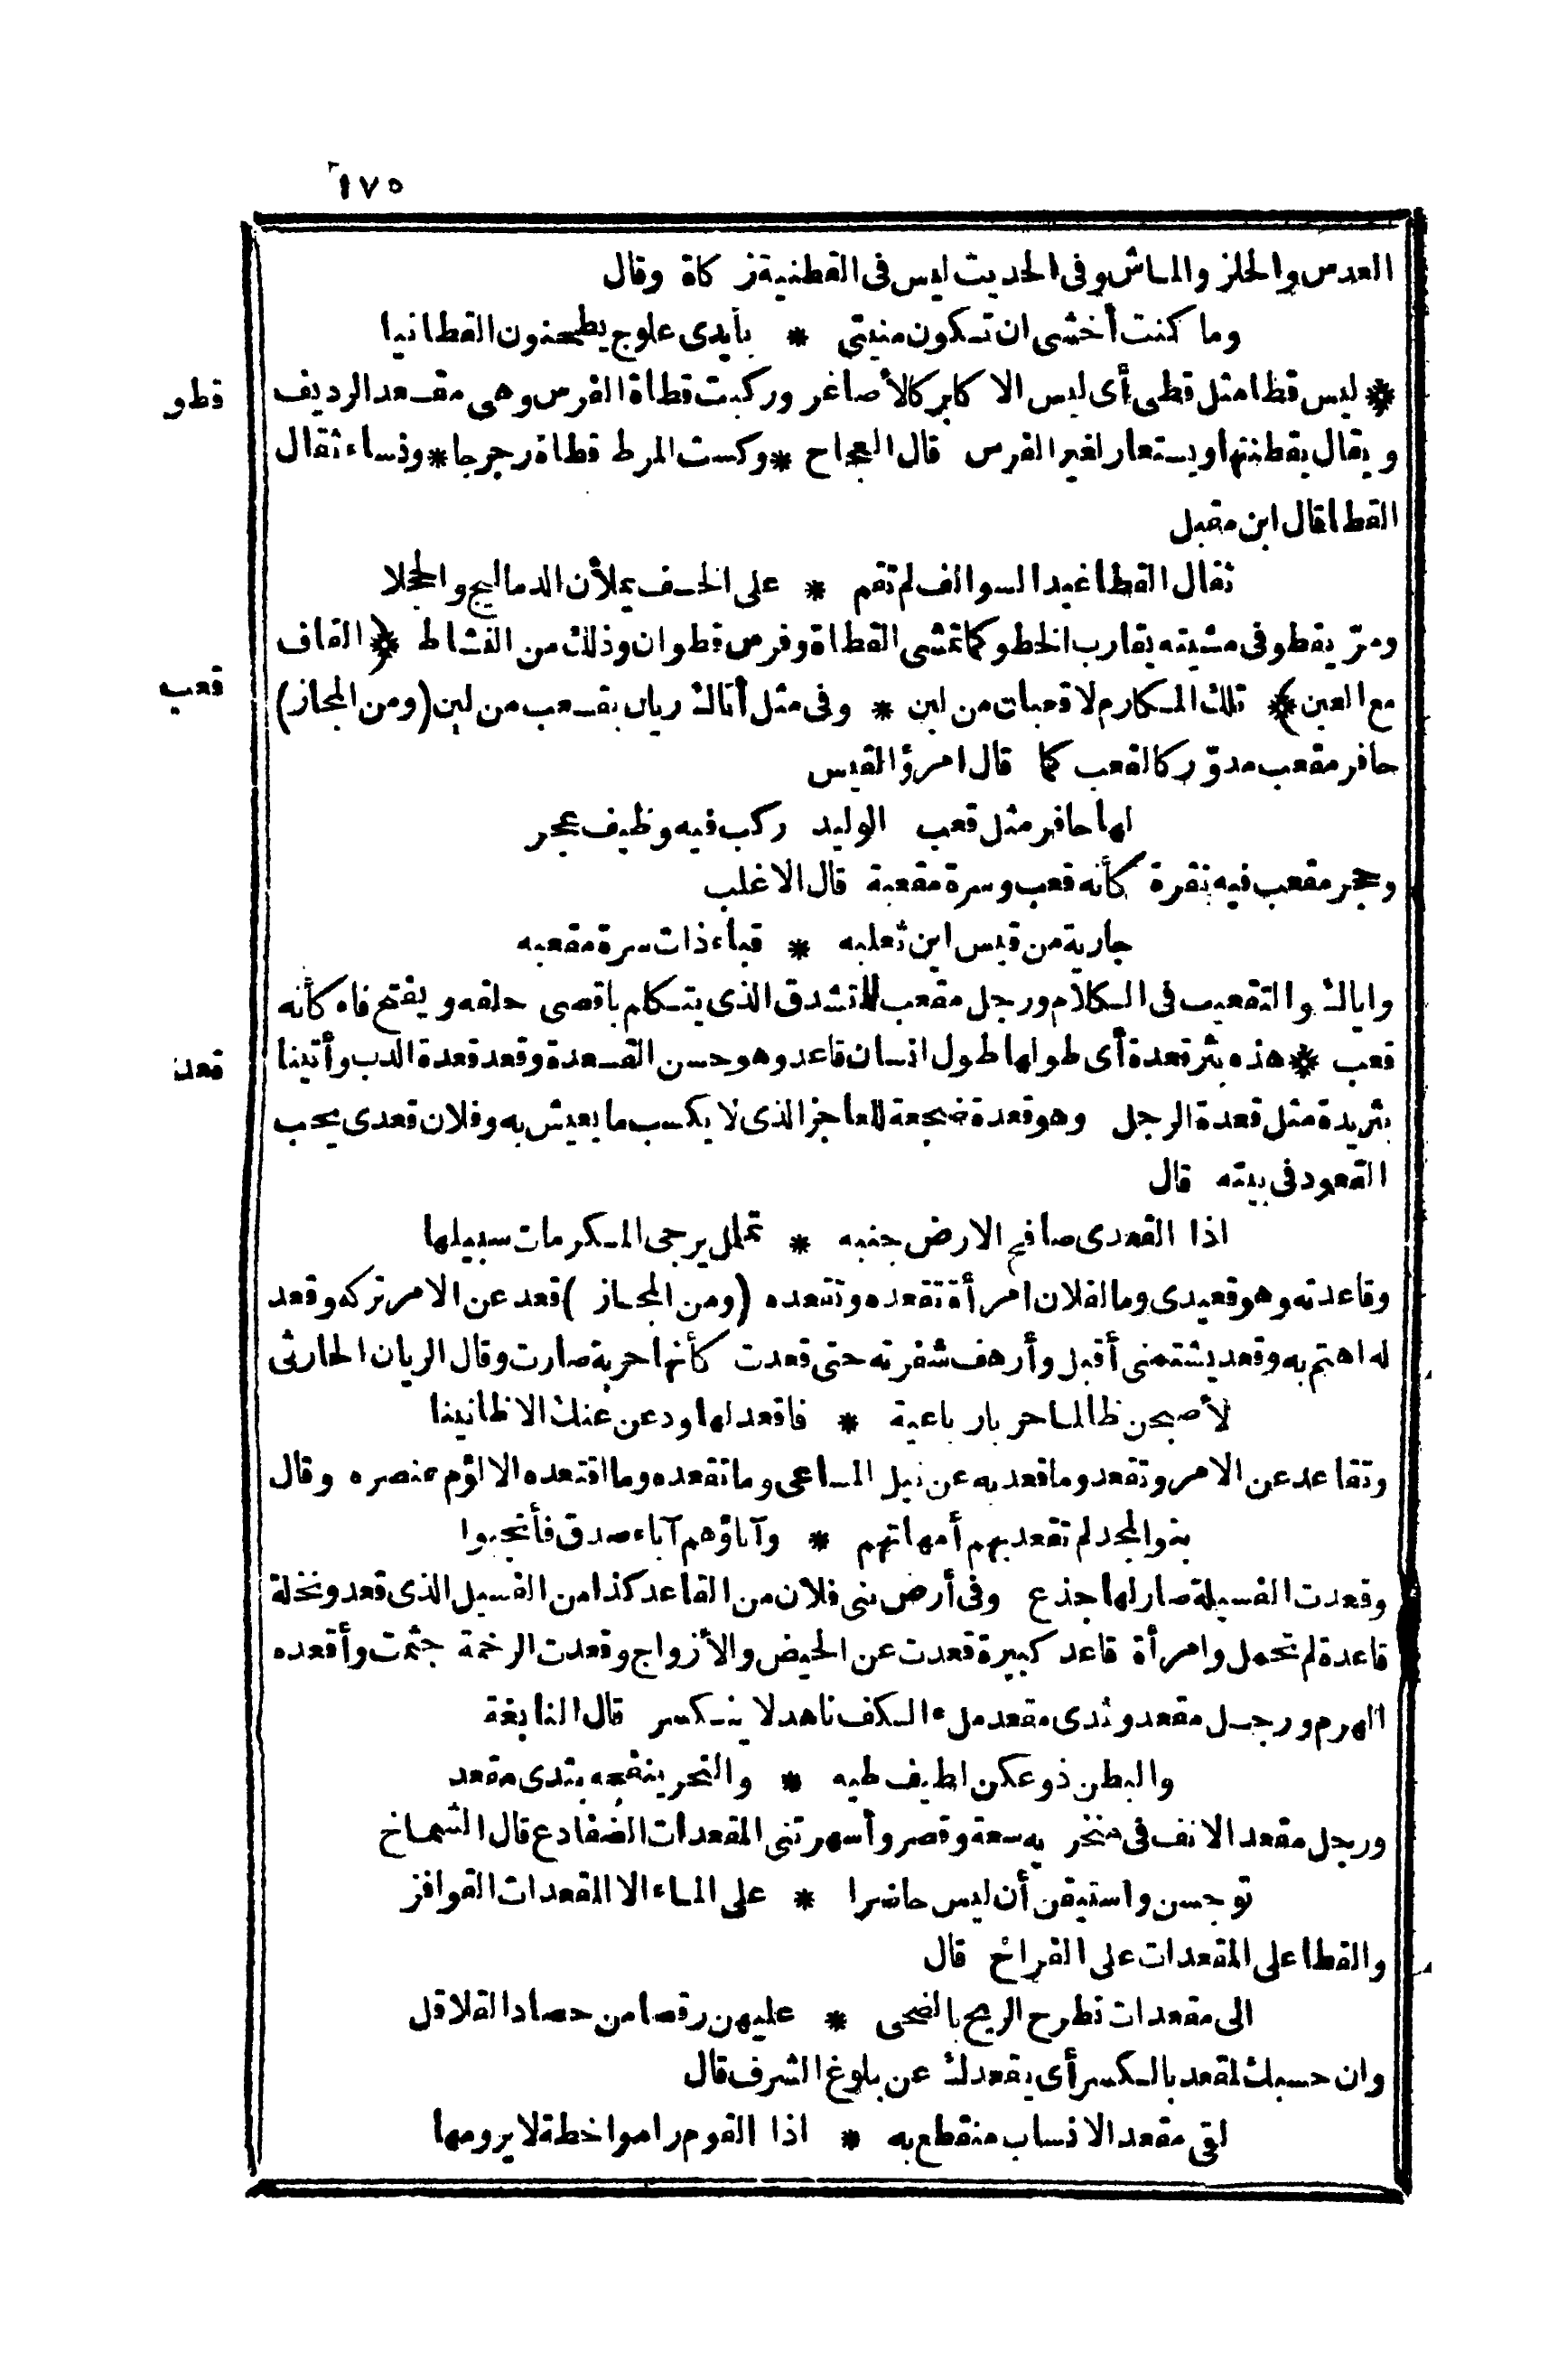 ١٧٥
العدس والخلز والماش وفى الحديث ليس فى القطنية زكاة وقال
وما كنت أخشى ان تكون منيتي * بأيدى علوج يطحنون القطانيا
قطو
* ليس قطا مثل قطى أى ليس الا كابر كالأصاغر وركبت قطاة الفرس وهى مقعد الرديف
ويقال بقطنتها ويستعار لغير الفرس قال العجاج * وكست المرط قطاة رجرجا * ونساء ثقال
القطا قال ابن مقبل
ثقال القطا غيد السوالف لم تقم * على الخسف يملأن الدماليج والحجلا
ومرّ يقطو فى مشيته يقارب الخطو كما تمشى القطاة وفرس قطوان وذلك من النشاط ﴿ القاف
قعب
مع العين ﴾ تلك المكارم لا قعبات من لبن * وفى مثل أتاك ريان بقعب من لبن (ومن المجاز)
حافر مقعب مدوّر كالقعب كما قال امرؤ القيس
لها حافر مثل قعب الوليد ركب فيه وظيف عجر
وحجر مقعب فيه نقرة كأنه قعب وسرة مقعبة قال الاغلب
جارية من قيس ابن ثعلبه * قباء ذات سرة مقعبه
واياك والتقعيب فى الكلام ورجل مقعب للمتشدق الذى يتكلم باقصى حلقه ويفتح فاه كأنه
قعد
قعب * هذه بئر قعدة أى طولها طول انسان قاعد وهو حسن القعدة وقعد قعدة الدب وأتينا
بثريدة مثل قعدة الرجل وهو قعدة ضجعة للعاجز الذى لا يكسب ما يعيش به وفلان قعدى يحب
القعود فى بيته قال
اذا القعدى صافح الارض جنبه * تململ يرجى المكرمات سبيلها
وقاعدته وهو قعيدى وما لفلان امرأة تقعده وتتقعده (ومن المجاز) قعد عن الامر تركه وقعد
له اهتم به وقعد يشتمنى أقبل وأرهف شفرته حتى قعدت كأنها حربة صارت وقال الريان الحارثى
لأصبحن ظالما حربا رباعية * فاقعد لها ودعن عنك الاظانينا
وتقاعد عن الامر وتقعد وما قعد به عن نيل المساعى وما تقعده وما اقتعده الا لؤم عنصره وقال
بنو المجد لم تقعد بهم أمهاتهم * وآباؤهم آباء صدق فأنجبوا
وقعدت الفسيلة صار لها جذع وفى أرض بنى فلان من القاعد كذا من الفسيل الذى قعد ونخلة
قاعدة لم تحمل وامرأة قاعد كبيرة قعدت عن الحيض والأزواج وقعدت الرخمة جثمت وأقعده
الهرم ورجل مقعد وثدى مقعد ملء الكف ناهد لا ينكسر قال النابغة
والبطن ذو عكن لطيف طيه * والنحر ينفجه بثدى مقعد
ورجل مقعد الانف فى منخر يه سعة وقصر وأسهرتنى المقعدات الضفادع قال الشماخ
توجسن واستيقن أن ليس حاضرا * على الماء الا المقعدات القوافز
والقطا على المقعدات على الفراخ قال
الى مقعدات تطرح الريح بالضحى * عليهن رفضا من حصاد القلاقل
وان حسبك لمقعد بالكسر أى يقعدك عن بلوغ الشرف قال
لقى مقعد الانساب منقطع به * اذا القوم راموا خطة لا يرومها